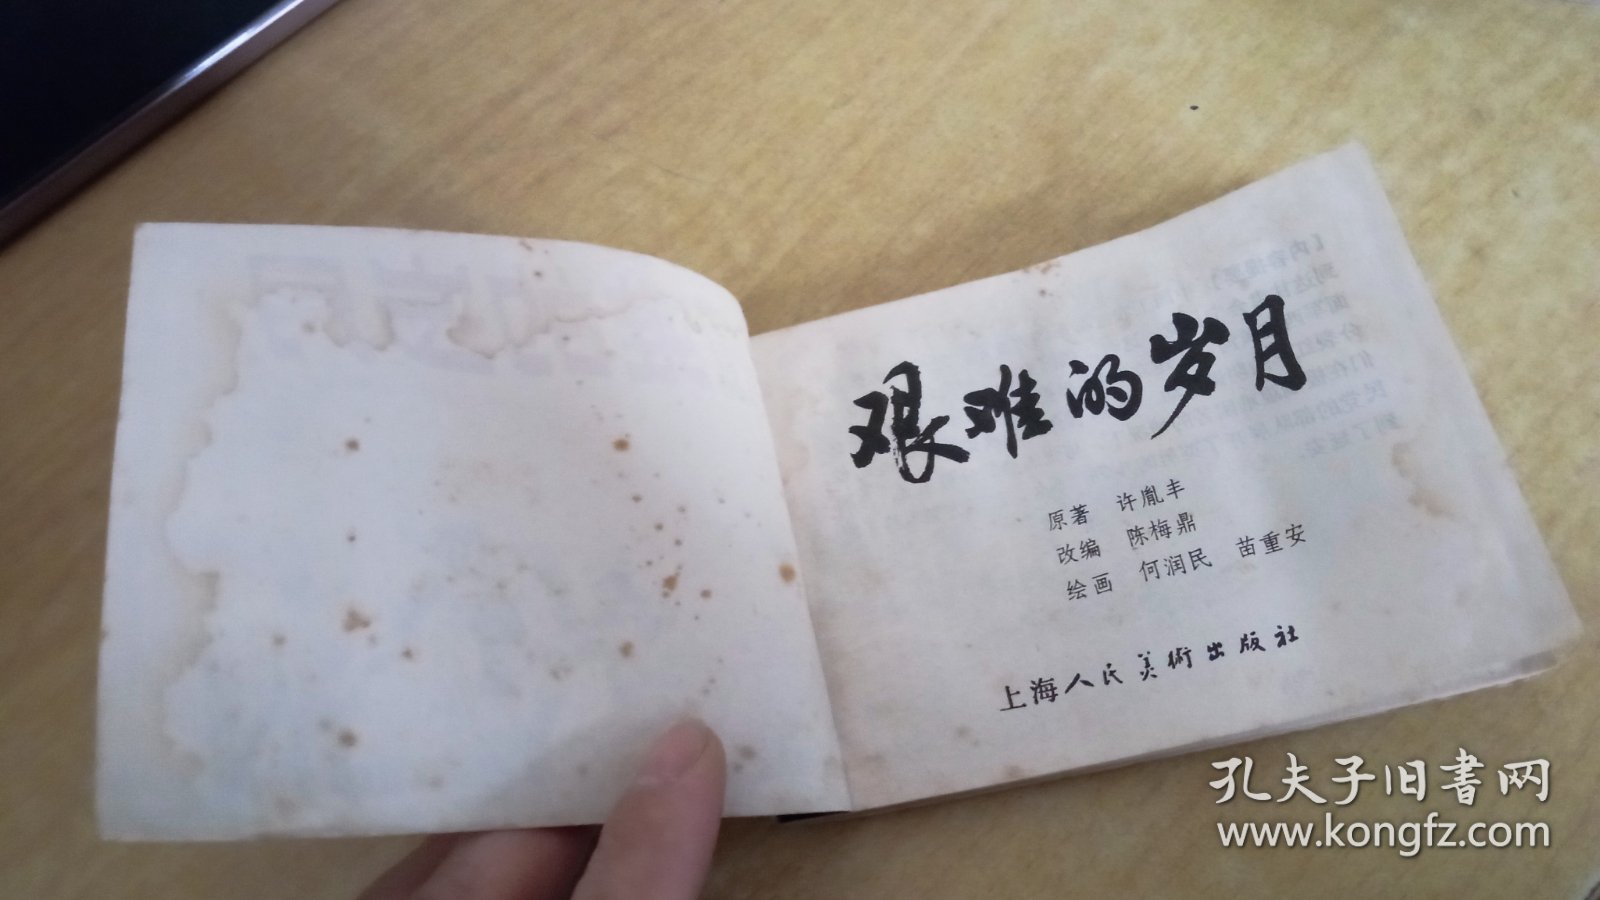 艰难的岁月
原著 许胤丰
改编 陈梅鼎
绘画 何润民 苗重安
上海人民美術出版社
孔夫子旧書网
www.kongfz.com